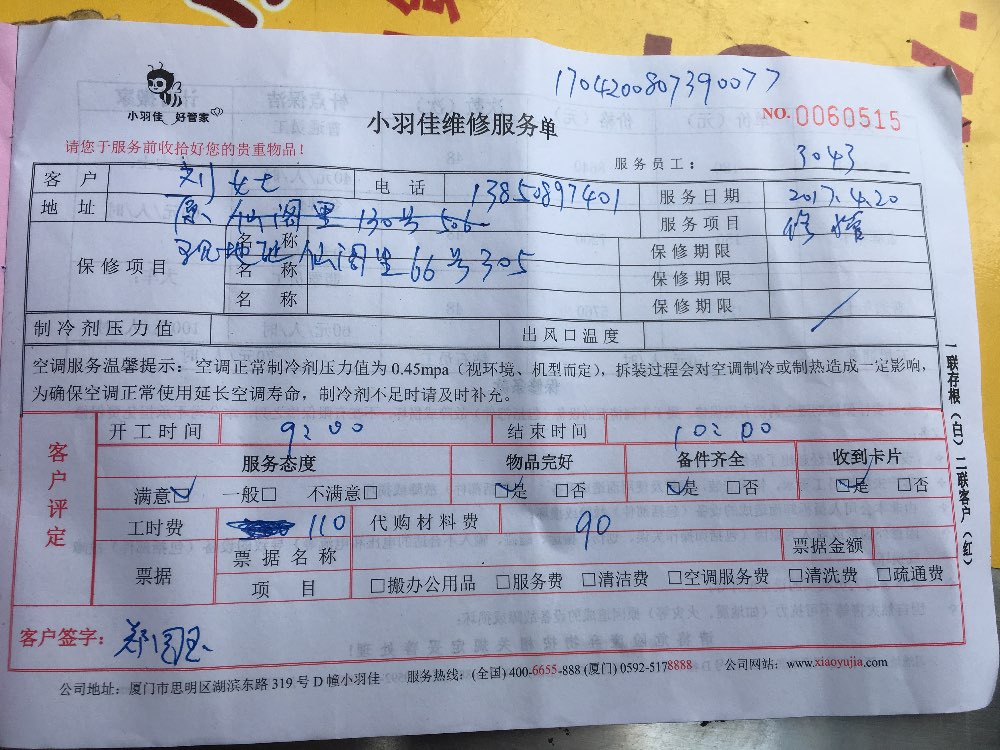 1704200807390077
小羽佳 好管家
小羽佳维修服务单
NO. 0060515
请您于服务前收拾好您的贵重物品！
服务员工： 3043
客 户 刘女士 电 话 13850897401 服务日期 2017.4.20
地 址 原 仙阁里130号506 服务项目 修
保修项目 名 称 保修期限
现地址 仙阁里66号305
名 称 保修期限
名 称 保修期限
制冷剂压力值 出风口温度
空调服务温馨提示：空调正常制冷剂压力值为 0.45mpa（视环境、机型而定），拆装过程会对空调制冷或制热造成一定影响，
为确保空调正常使用延长空调寿命，制冷剂不足时请及时补充。
客户评定
开工时间 9:00 结束时间 10:00
服务态度 物品完好 备件齐全 收到卡片
满意☑ 一般□ 不满意□ ☑是 □否 ☑是 □否 ☑是 □否
工时费 110 代购材料费 90
票据 票据名称 票据金额
项 目 □搬办公用品 □服务费 □清洁费 □空调服务费 □清洗费 □疏通费
客户签字：
公司地址：厦门市思明区湖滨东路 319 号 D 幢小羽佳 服务热线：(全国) 400-6655-888 (厦门) 0592-5178888 公司网站：www.xiaoyujia.com
一联存根（白）二联客户（红）